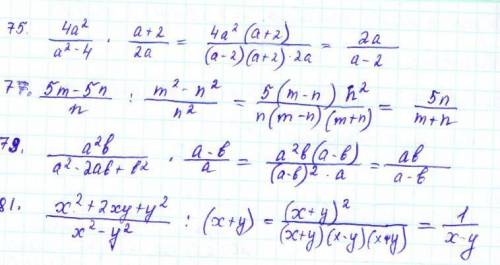 75. \frac{4a^2}{a^2-4} \cdot \frac{a+2}{2a} = \frac{4a^2(a+2)}{(a-2)(a+2)\cdot 2a} = \frac{2a}{a-2}
77. \frac{5m-5n}{n} : \frac{m^2-n^2}{n^2} = \frac{5(m-n)n^2}{n(m-n)(m+n)} = \frac{5n}{m+n}
79. \frac{a^2b}{a^2-2ab+b^2} \cdot \frac{a-b}{a} = \frac{a^2b(a-b)}{(a-b)^2\cdot a} = \frac{ab}{a-b}
81. \frac{x^2+2xy+y^2}{x^2-y^2} : (x+y) = \frac{(x+y)^2}{(x+y)(x-y)(x+y)} = \frac{1}{x-y}